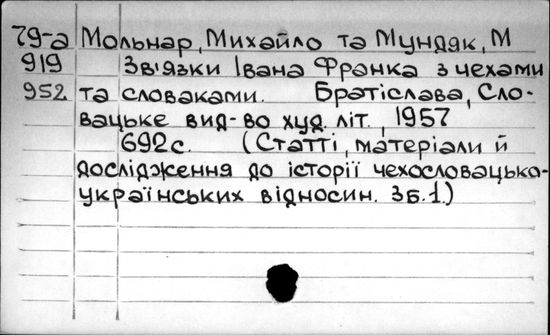 79-а Мольнар, Михайло та Мундяк, М
919 Зв'язки Івана Франка з чехами
952 та словаками. Братіслава, Сло-
вацьке вид-во худ. літ., 1957
692 с. (Статті, матеріали й
дослідження до історії чехословацько-
українських відносин. Зб.1.)